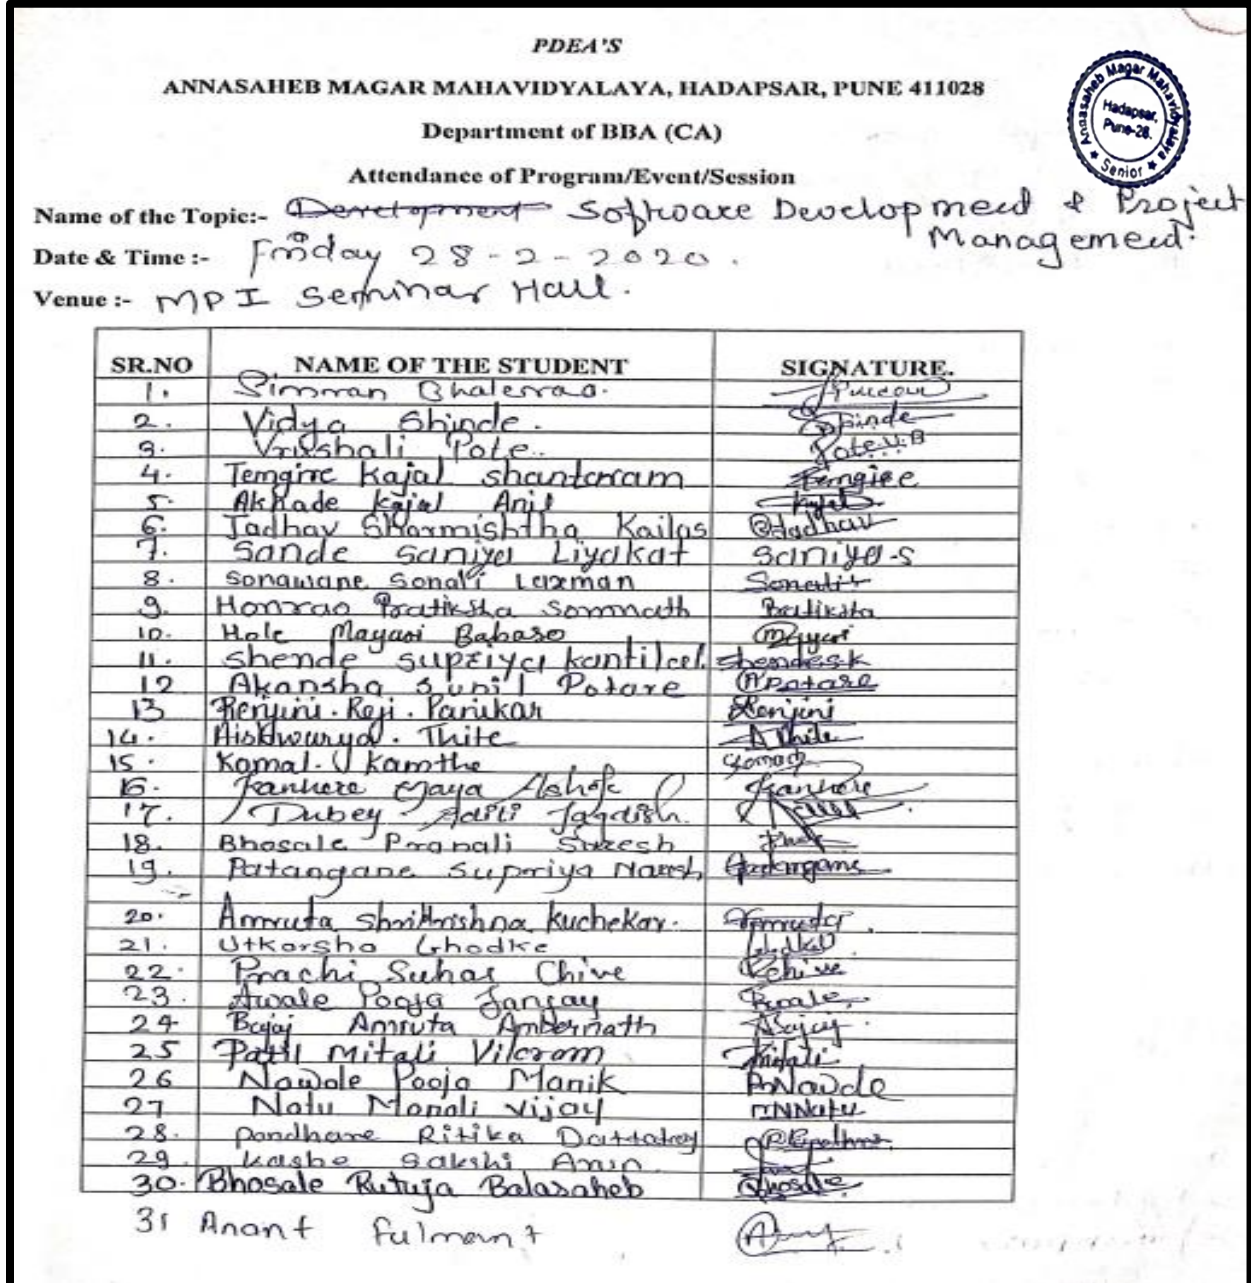 PDEA'S
ANNASAHEB MAGAR MAHAVIDYALAYA, HADAPSAR, PUNE 411028
Annasaheb Magar Mahavidyalaya
Hadapsar,
Pune-28.
★ Senior ★
Department of BBA (CA)
Attendance of Program/Event/Session
Name of the Topic:- Development Software Development & Project
Management.
Date & Time :- Friday 28-2-2020.
Venue :- MPI Seminar Hall.
SR.NO NAME OF THE STUDENT SIGNATURE.
1. Simran Bhalerao.
2. Vidya Shinde. Shinde
3. Vrushali Pote. Pote V.B
4. Temgire Kajal shantaram Temgire
5. Akhade kajal Anil Kajal
6. Jadhav Sharmishtha Kailas Jadhav
7. Sande Saniya Liyakat Saniya-S
8. Sonawane Sonali Laxman Sonali
9. Honrao Pratiksha Somnath Pratiksha
10. Hole Mayuri Babaso Mayuri
11. Shende supriya kantilal. Shende S.K
12 Akansha Sunil Potare A Potare
13 Renjini. Reji. Panikar Renjini
14. Aishwarya. Thite A Thite
15. Komal. U kamthe Komal
16. Kanhere Maya Ashok Kanhere
17. Dubey Aditi Jagdish.
18. Bhosale Pranali Suresh
19. Patangane Supriya Naresh Patangane
20. Amruta Shrikrishna Kuchekar. Amruta
21. Utkarsha Ghodke
22. Prachi Suhas Chive Pchive
23. Awale Pooja Sanjay
24 Bajaj Amruta Ambernath ABajaj
25 Patil Mitali Vikram Mitali
26 Nawole Pooja Manik
27 Natu Monali Vijay MNNatu
28. Pandhare Ritika Dattatray
29. Kashe Sakshi
30. Bhosale Rutuja Balasaheb Bhosale
31 Anant Fulmant